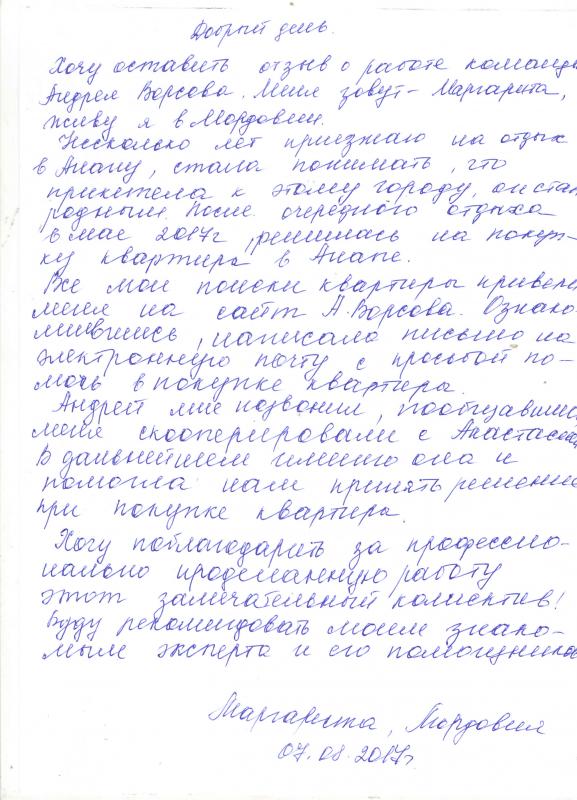 Добрый день.
Хочу оставить отзыв о работе команды
Андрея Ворсова. Меня зовут - Маргарита,
живу я в Мордовии.
Несколько лет приезжаю на отдых
в Анапу, стала понимать, что
прикипела к этому городу, он стал
родным. После очередного отдыха
в мае 2017г решилась на покуп-
ку квартиры в Анапе.
Все мои поиски квартиры привели
меня на сайт А.Ворсова. Ознако-
мившись, написала письмо на
электронную почту с просьбой по-
мочь в покупке квартиры.
Андрей мне позвонил, пообщавшись
меня скооперировали с Анастасией
В дальнейшем именно она и
помогла нам принять решение
при покупке квартиры.
Хочу поблагодарить за професси-
нально проделанную работу
этот замечательный коллектив!
Буду рекомендовать моим знако-
мым эксперта и его помощников
Маргарита, Мордовия
07.08.2017г.